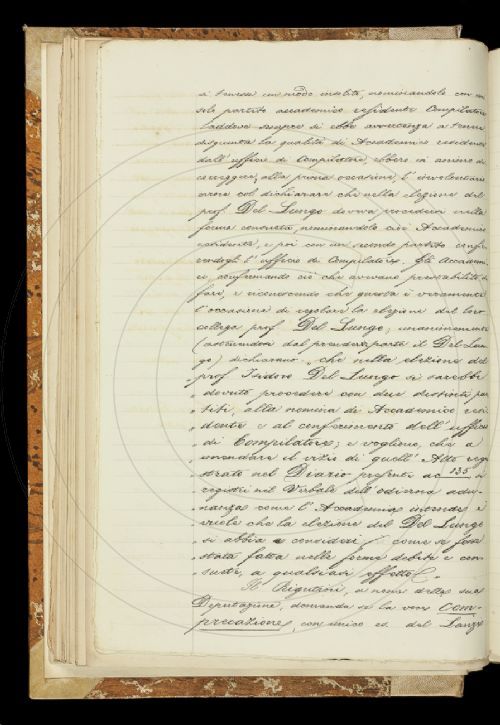 si tenesse in modo insolito, nominandolo con un
solo partito accademico residente Compilatore
laddove sempre si ebbe avvertenza a tener
disgiunta la qualità di Accademico residente
dall'ufficio di Compilatore, ebbero in animo di
correggere, alla prima occasione, l'involontario
errore col dichiarare che nella elezione del
prof. Del-Lungo doveva procedersi nella
forma consueta, nominandolo cioè Accademico
residente, e poi con un secondo partito confe-
rendogli l'ufficio di Compilatore. Gli Accademi-
ci, confermando ciò che avevano prestabilito di
fare, e riconoscendo che questa è veramente
l'occasione di regolare la elezione del loro
collega prof. Del Lungo, unanimemente
(astenendosi dal prender parte il Del-Lun-
go) dichiarano „ che nella elezione del
„ prof. Isidoro Del-Lungo si sarebbe
„ dovuto procedere con due distinti par-
„ titi, alla nomina di Accademico resi-
„ dente e al conferimento dell'ufficio
„ di Compilatore; e vogliono, che a
„ emendare il vizio di quell'Atto regi-
„ strato nel Diario presente a c. 135 si
„ registri nel Verbale dell'odierna adu-
„ nanza come l'Accademia intende e
„ vuole che la elezione del Del Lungo
„ si abbia a considerare come se fosse
„ stata fatta nelle forme debite e con-
„ suete, a qualsiasi effetto.
Il Rigutini, a nome della sua
Deputazione, domanda se la voce Com-
precazione, con unico es. del Lanzi